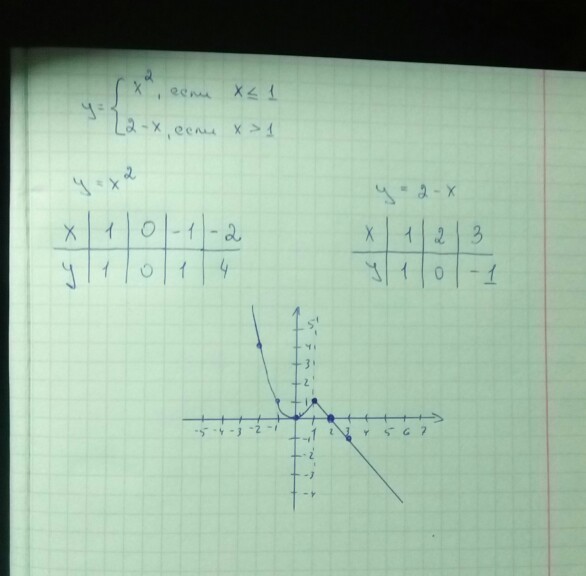 y = { x², если x ≤ 1
2-x, если x > 1
y = x²
y = 2 - x
x | 1 | 0 | -1 | -2
y | 1 | 0 | 1 | 4
x | 1 | 2 | 3
y | 1 | 0 | -1
5
4
3
2
1
-5 -4 -3 -2 -1 1 2 3 4 5 6 7
-1
-2
-3
-4